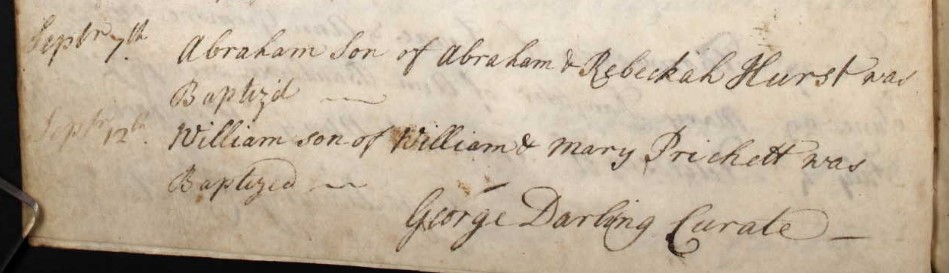 Septr 7th. Abraham Son of Abraham & Rebeckah Hurst was
Baptiz'd
Septr 12th. William son of William & Mary Prichett was
Baptized
George Darling Curate